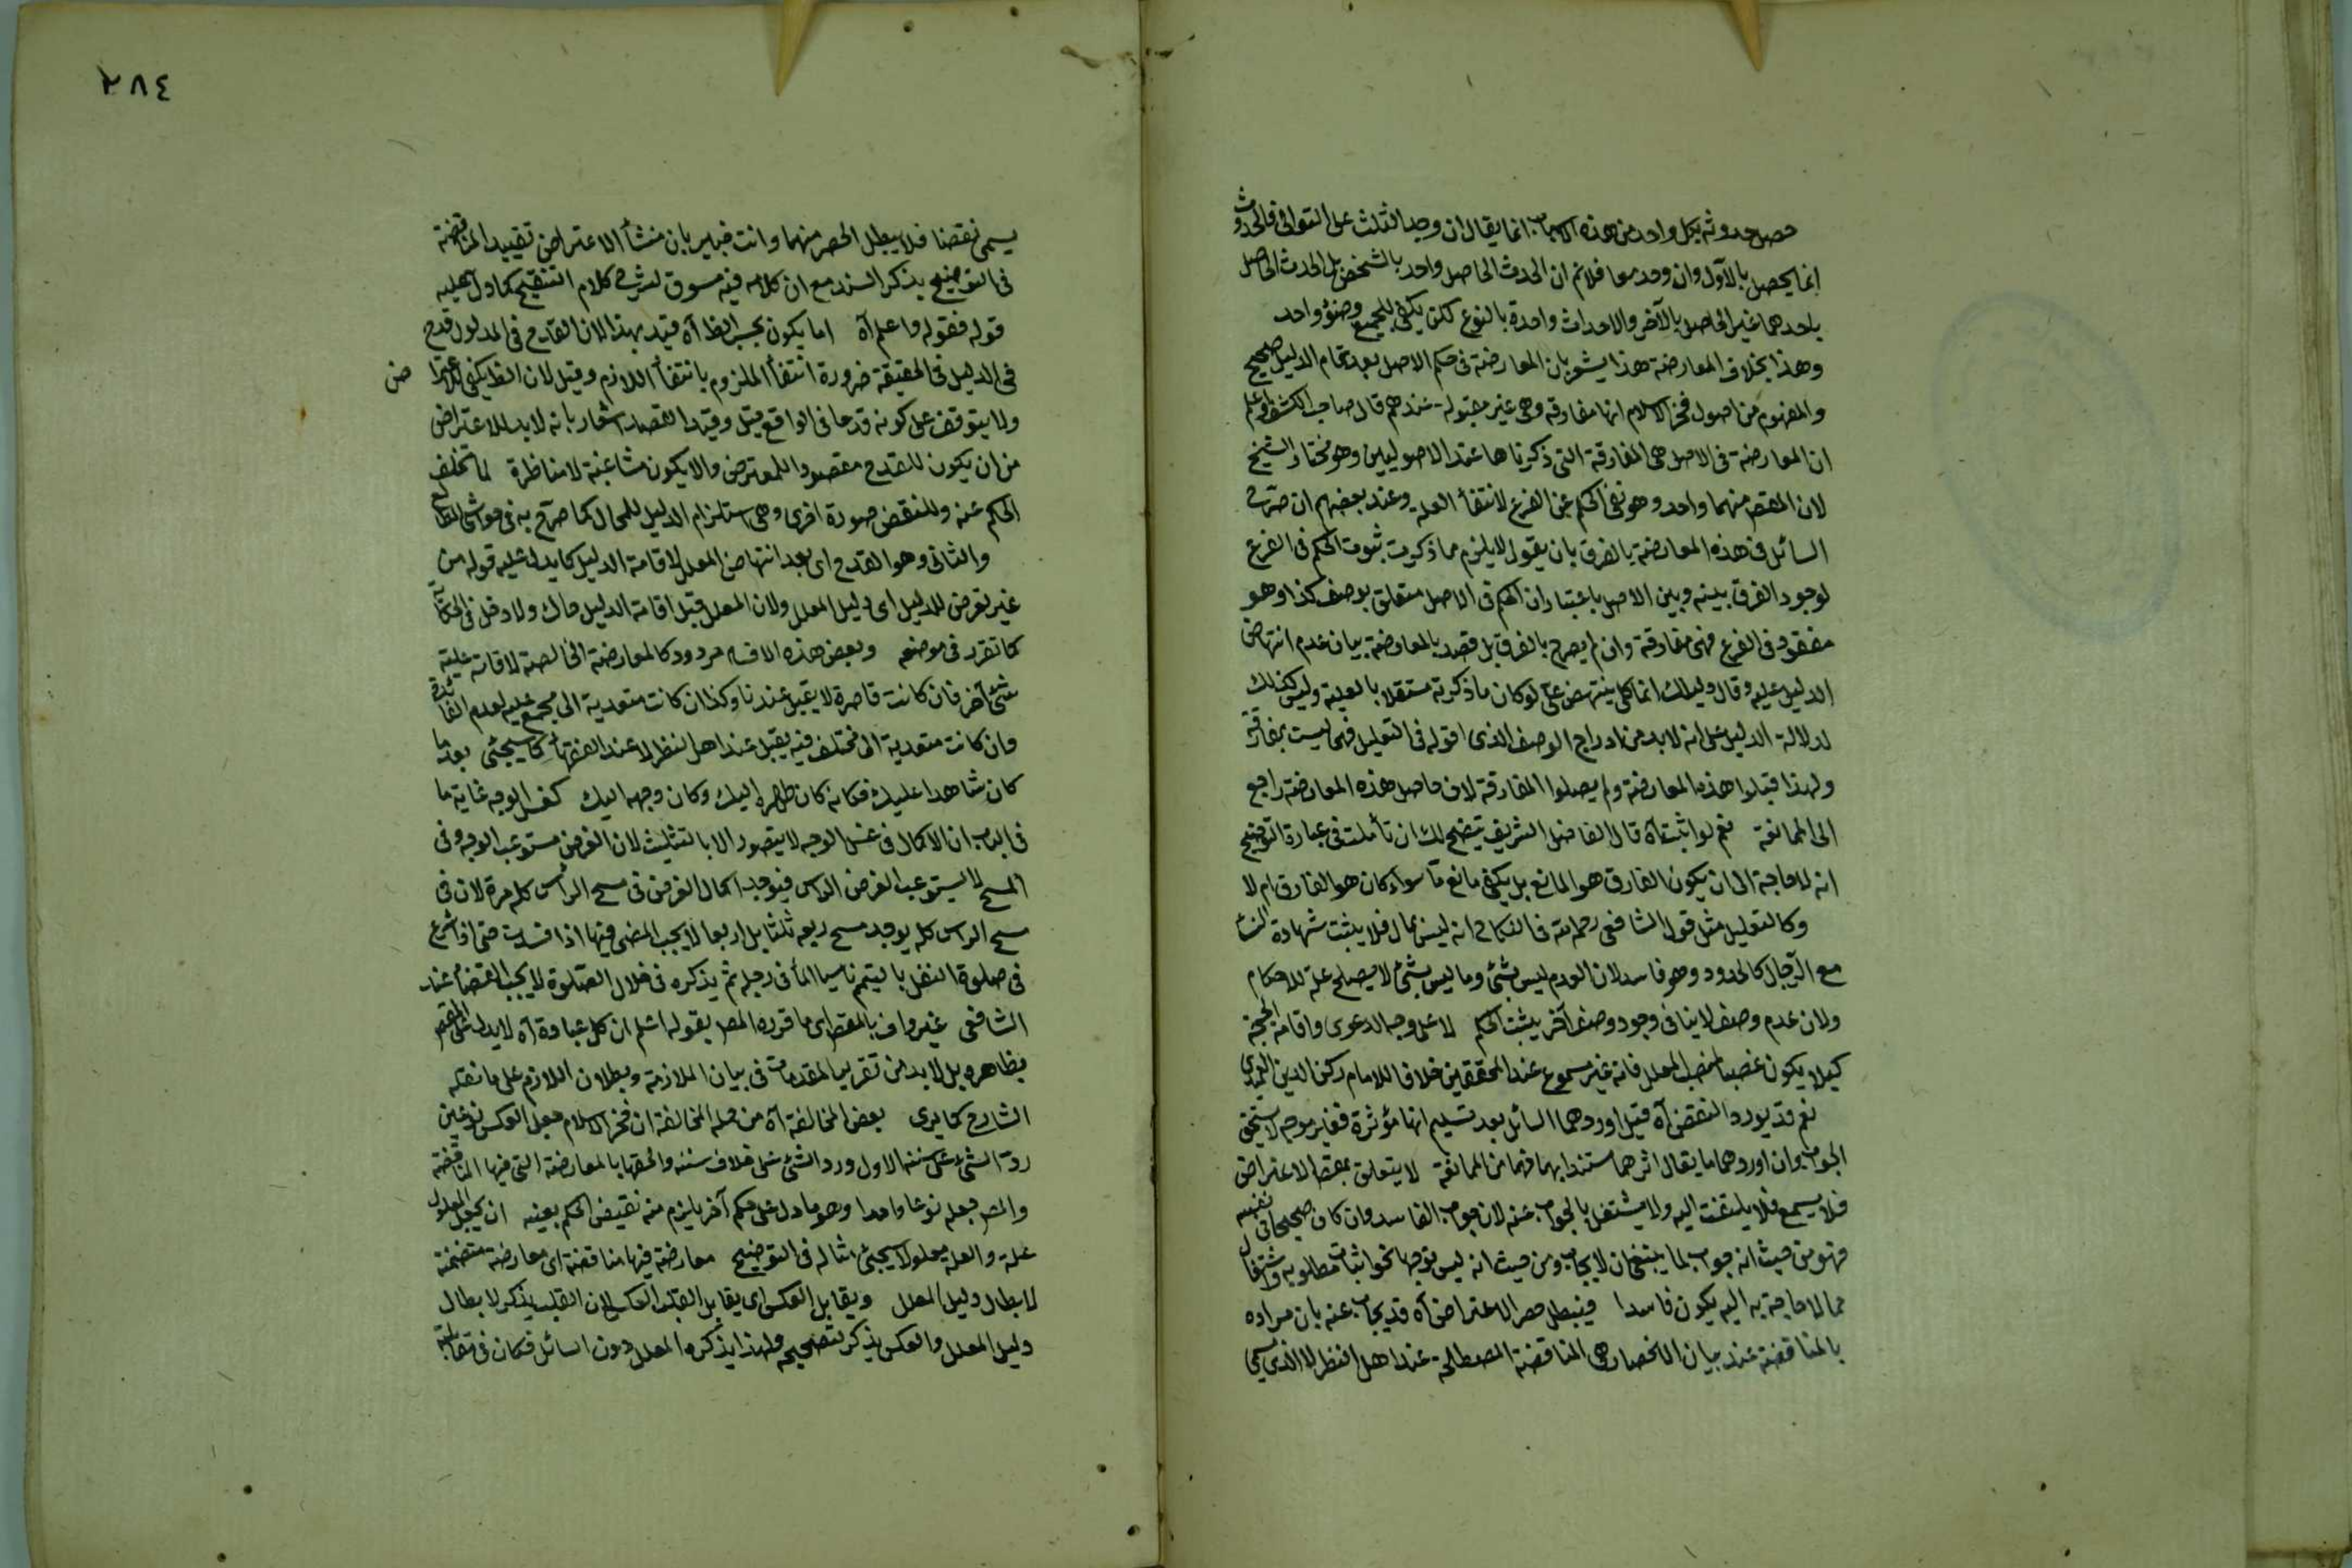 حصل حدوثه بكل واحد من هذه الاسباب انما يقال ان وجد الثلث على التوالى فالحدوث
انما يحصل بالاول وان وجد معا فلانم ان الحدث الحاصل واحد بالشخص بل الحدث الحاصل
باحدهما غير الحاصل بالآخر والاحداث واحدة بالنوع لكن يكفى للجميع وضوء واحد
وهذا بخلاف المعارضة هذا يشعر بان المعارضة فى حكم الاصل بعد تمام الدليل صحيح
والمفهوم من اصول فخر الاسلام انها مفارقة وهى غير مقبولة عندهم قال صاحب الكشف واعلم
ان المعارضة فى الاصل هى المفارقة التى ذكرناها عند الاصوليين وهو مختار الشيخ
لان المقصد منهما واحد وهو نفى الحكم عن الفرع لانتفاء العلة وعند بعضهم ان صرح
السائل فى هذه المعارضة بالفرق بان يقول لا يلزم مما ذكرت ثبوت الحكم فى الفرع
لوجود الفرق بينه وبين الاصل باعتبار ان الحكم فى الاصل متعلق بوصف كذا وهو
مفقود فى الفرع فهى مفارقة وان لم يصرح بالفرق بل قصد بالمعارضة بيان عدم انتهاض
الدليل عليه وقال دليلك انما ينتهض على لو كان ما ذكرته مستقلا بالعلية وليس كذلك
لدلالة الدليل على انه لا بد من ادراج الوصف الذى اقوله فى التعليل فهى ليست بمفارقة
ولهذا قبلوا هذه المعارضة ولم يقبلوا المفارقة لان حاصل هذه المعارضة راجع
الى الممانعة نعم لو اثبت آه قال الفاضل الشريف يتضح لك ان تأملت فى عبارة التوضيح
انه لا حاجة الى ان يكون الفارق هو المانع بل يكفى مانع ما سواء كان هو الفارق ام لا
وكالتعليل مثل قول الشافعى رحمه الله فى النكاح انه ليس بمال فلا يثبت شهادة النساء
مع الرجال كالحدود وهو فاسد لان العدم ليس بشئ وما ليس بشئ لا يصلح علة للاحكام
ولان عدم وصف لا ينافى وجود وصف آخر يثبت الحكم لا على وجه الدعوى واقامة الحجة
كيلا يكون غصبا لمنصب المعلل فانه غير مسموع عند المحققين خلافا للامام ركن الدين العميدى
نعم قد يورد النقض آه قيل اوردهما السائل بعد تسليم انها مؤثرة فغير موجه لا يستحق
الجواب وان اوردهما ما يقال اثرهما مستندا بهما فهما من الممانعة لا يتعلق بمقصد الاعتراض
فلا يسمع فلا يلتفت اليه ولا يشتغل بالجواب عنه لان جواب الفاسد وان كان صحيحا فى نفسه
فهو من حيث انه جواب لما ينبغى ان لا يجاب ومن حيث انه ليس توجها نحو اثبات مطلوبه واشتغال
بما لا حاجة به اليه يكون فاسدا فيبطل حصر الاعتراض آه قد يجاب عنه بان مراده
بالمناقضة عند بيان الانحصار هى المناقضة المصطلحة عند اهل النظر لا الذى يسمى
٢٨٤
يسمى نقضا فلا يبطل الحصر منهما وانت خبير بان منشأ الاعتراض تقييد المناقضة
فى التوضيح بذكر السند مع ان كلامه فيه مسوق لشرح كلام التنقيح كما دل عليه
قوله فقوله فاعلم آه اما يكون بحسب الظ آه قيد بهذا لان القدح فى المدلول قدح
فى الدليل فى الحقيقة ضرورة انتفاء الملزوم بانتفاء اللازم وقيل لان الظ يكفى للاعترا ض
ولا يتوقف على كونه قدحا فى الواقع قيل وقيد القصد اشعار بانه لا بد للاعتراض
من ان يكون للقدح مقصودا للمعترض والا يكون مشاغبة لا مناظرة لما تخلف
الحكم عنه وللنقض صورة اخرى وهى استلزام الدليل للمحال كما صرح به فى حواشى المطالع
والثانى وهو القدح اى بعد انتهاض المعلل لاقامة الدليل كما يدل عليه قوله من
غير تعرض للدليل اى دليل المعلل ولان المعلل قبل اقامة الدليل حاك ولا دخل فى الحكاية
كما تقرر فى موضعه وبعض هذه الاقسام مردود كالمعارضة الخالصة لاقامة علية
شئ آخر فان كانت قاصرة لا يقبل عندنا وكذا ان كانت متعدية الى مجمع عليه لعدم الفائدة
وان كانت متعدية الى مختلف فيه يقبل عند اهل النظر لا عند الفقهاء كما سيجئ بعد ما
كان شاهدا عليك فكانه كان ظهره اليك وكان وجهه اليك كغسل الوجه غاية ما
فى الباب ان الاكمال فى غسل الوجه لا يتصور الا بالتثليث لان الفرض مستوعب الوجه وفى
المسح لا يستوعب الفرض الراس فيوجد اكمال الفرض فى مسح الرأس كله مرة لان فى
مسح الراس كله يوجد مسح ربعه ثلثا بل اربعا لا يجب المضى فيها اذا فسدت حتى اذا شرع
فى صلوة النفل بالتيمم ناسيا الماء فى رحله ثم يذكره فى خلال الصلوة لا يجب القضاء عند
الشافعى غير واف بالمقصد اى ما قرره المص بقوله اعلم ان كل عبادة آه لا يدل على المقصد
بظاهره بل لا بد من تقرير المقدمات فى بيان الملازمة وبطلان اللازم على ما نقله
الشارح كما يرى بعض المخالفة آه من جملة المخالفة ان فخر الاسلام جعل العكس نوعين
رد الشئ على سننه الاول ورد الشئ على خلاف سننه والحقها بالمعارضة التى فيها المناقضة
والمص جعله نوعا واحدا وهو ما دل على حكم آخر يلزم منه نقيض الحكم بعينه ان يجعل المعلول
علة والعلة معلولا سيجئ مثاله فى التوضيح معارضة فيها مناقضة اى معارضة متضمنة
لابطال دليل المعلل ويقابل العكس اى يقابل القلب العكس لان القلب يذكر لابطال
دليل المعلل والعكس يذكر لتصحيحه ولهذا يذكره المعلل دون السائل فكان فى مقابلته